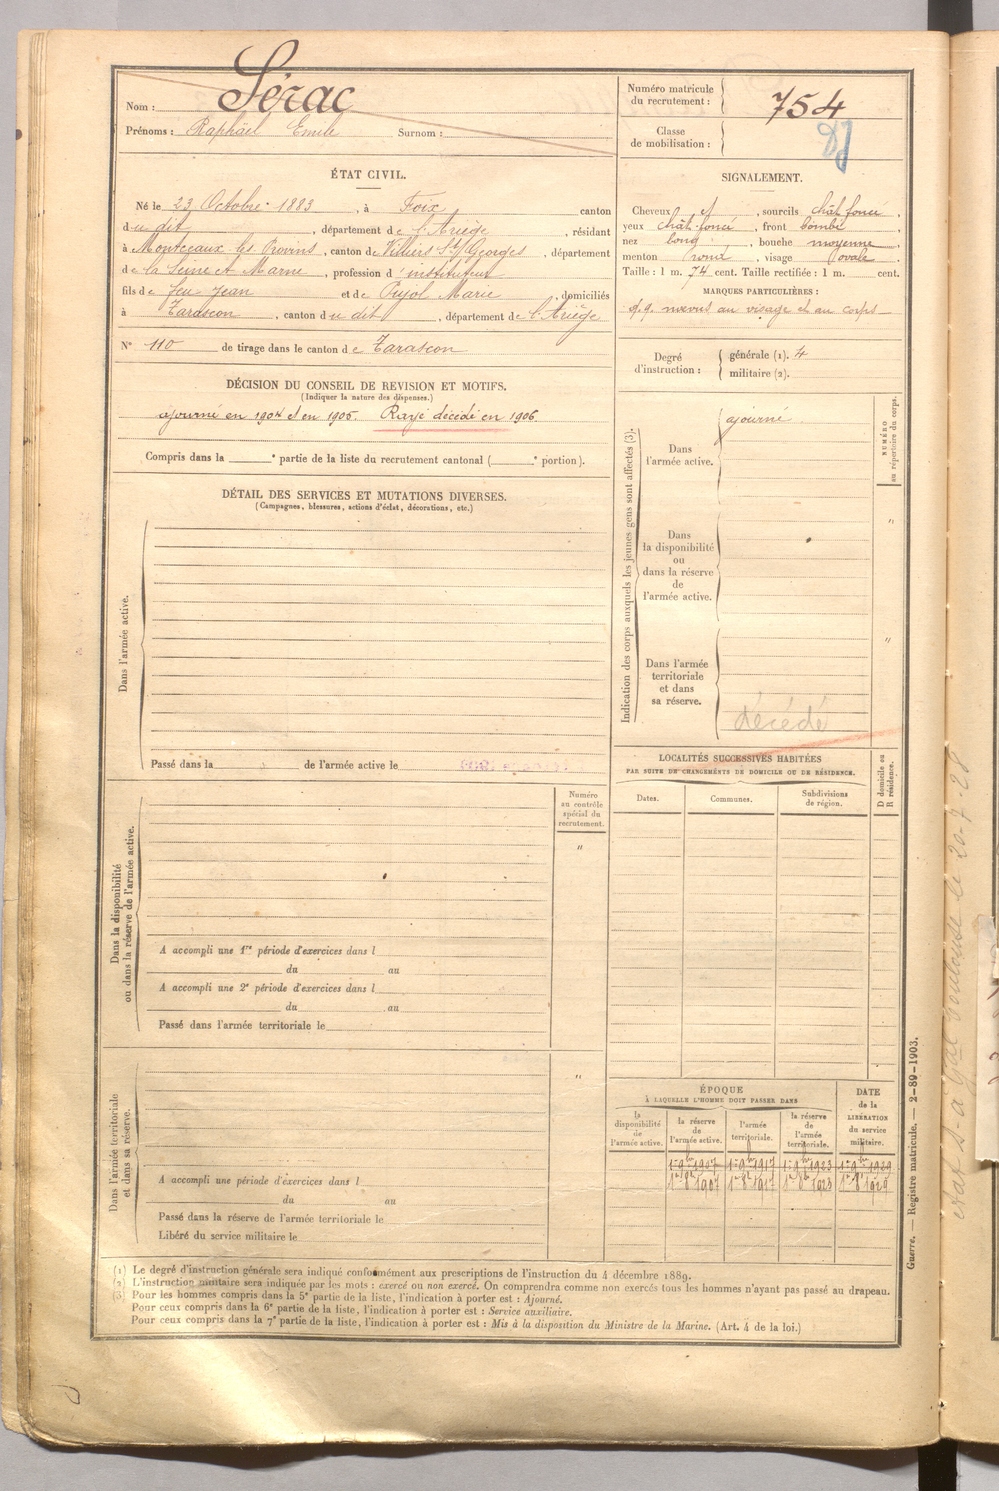 Nom : Sérac
Prénoms : Raphaël Emile Surnom :
Numéro matricule du recrutement : 754
Classe de mobilisation :
ÉTAT CIVIL.
Né le 23 Octobre 1883, à Foix canton
du dit, département de l'Ariège, résidant
à Montceaux les Provins, canton de Villiers St Georges, département
de la Seine et Marne, profession d'instituteur
fils de feu Jean et de Pujol Marie, domiciliés
à Tarascon, canton du dit, département de l'Ariège
N° 110 de tirage dans le canton de Tarascon
SIGNALEMENT.
Cheveux, sourcils chât foncé,
yeux chât foncé, front bombé
nez long, bouche moyenne
menton rond, visage ovale,
Taille : 1 m. 74 cent. Taille rectifiée : 1 m. cent.
MARQUES PARTICULIÈRES :
q.q. nœvus au visage et au corps
Degré d'instruction : générale (1). 4
militaire (2).
DÉCISION DU CONSEIL DE REVISION ET MOTIFS.
(Indiquer la nature des dispenses.)
ajourné en 1904 et en 1905. Rayé décédé en 1906.
Compris dans la e partie de la liste du recrutement cantonal ( e portion).
DÉTAIL DES SERVICES ET MUTATIONS DIVERSES.
(Campagnes, blessures, actions d'éclat, décorations, etc.)
Dans l'armée active.
Passé dans la de l'armée active le
Indication des corps auxquels les jeunes gens sont affectés (3).
NUMÉRO au répertoire du corps.
Dans l'armée active.
ajourné
Dans la disponibilité ou dans la réserve de l'armée active.
"
Dans l'armée territoriale et dans sa réserve.
"
décédé
LOCALITÉS SUCCESSIVES HABITÉES
PAR SUITE DE CHANGEMENTS DE DOMICILE OU DE RÉSIDENCE.
Dates. Communes. Subdivisions de région. D domicile ou R résidence.
Dans la disponibilité ou dans la réserve de l'armée active.
Numéro au contrôle spécial du recrutement.
"
A accompli une 1re période d'exercices dans l
du au
A accompli une 2e période d'exercices dans l
du au
Passé dans l'armée territoriale le
Dans l'armée territoriale et dans sa réserve.
"
A accompli une période d'exercices dans l
du au
Passé dans la réserve de l'armée territoriale le
Libéré du service militaire le
ÉPOQUE
À LAQUELLE L'HOMME DOIT PASSER DANS
la disponibilité de l'armée active.
la réserve de l'armée active.
l'armée territoriale.
la réserve de l'armée territoriale.
DATE de la LIBÉRATION du service militaire.
1er 9bre 1907 1er 9bre 1917 1er 9bre 1923 1er 9bre 1929
1er 8bre 1907 1er 8bre 1917 1er 8bre 1923 1er 8bre 1929
(1) Le degré d'instruction générale sera indiqué conformément aux prescriptions de l'instruction du 4 décembre 1889.
(2) L'instruction militaire sera indiquée par les mots : exercé ou non exercé. On comprendra comme non exercés tous les hommes n'ayant pas passé au drapeau.
(3) Pour les hommes compris dans la 5e partie de la liste, l'indication à porter est : Ajourné.
Pour ceux compris dans la 6e partie de la liste, l'indication à porter est : Service auxiliaire.
Pour ceux compris dans la 7e partie de la liste, l'indication à porter est : Mis à la disposition du Ministre de la Marine. (Art. 4 de la loi.)
Guerre. — Registre matricule. — 2-89-1903.
Toulouse le 20-7-28